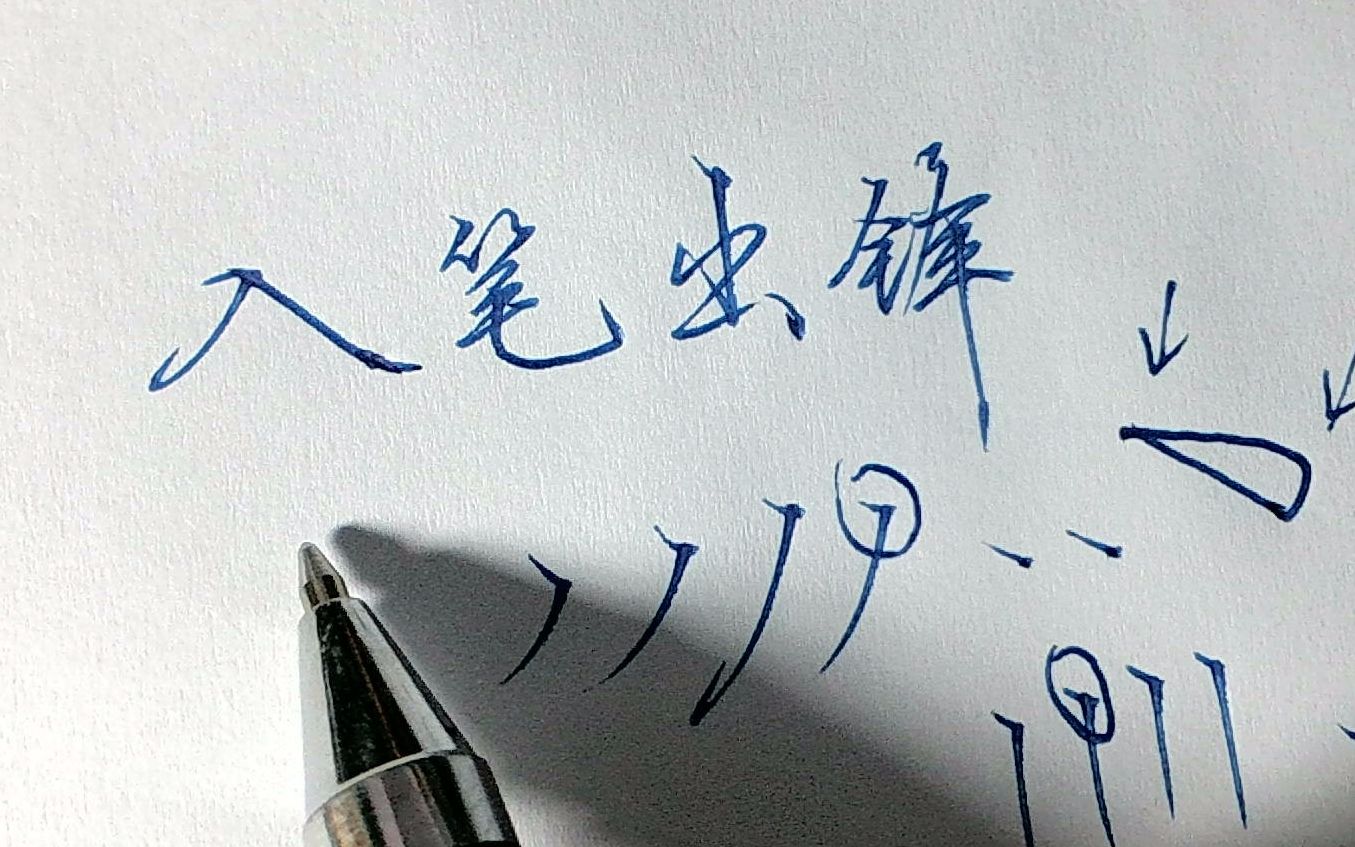 入笔出锋